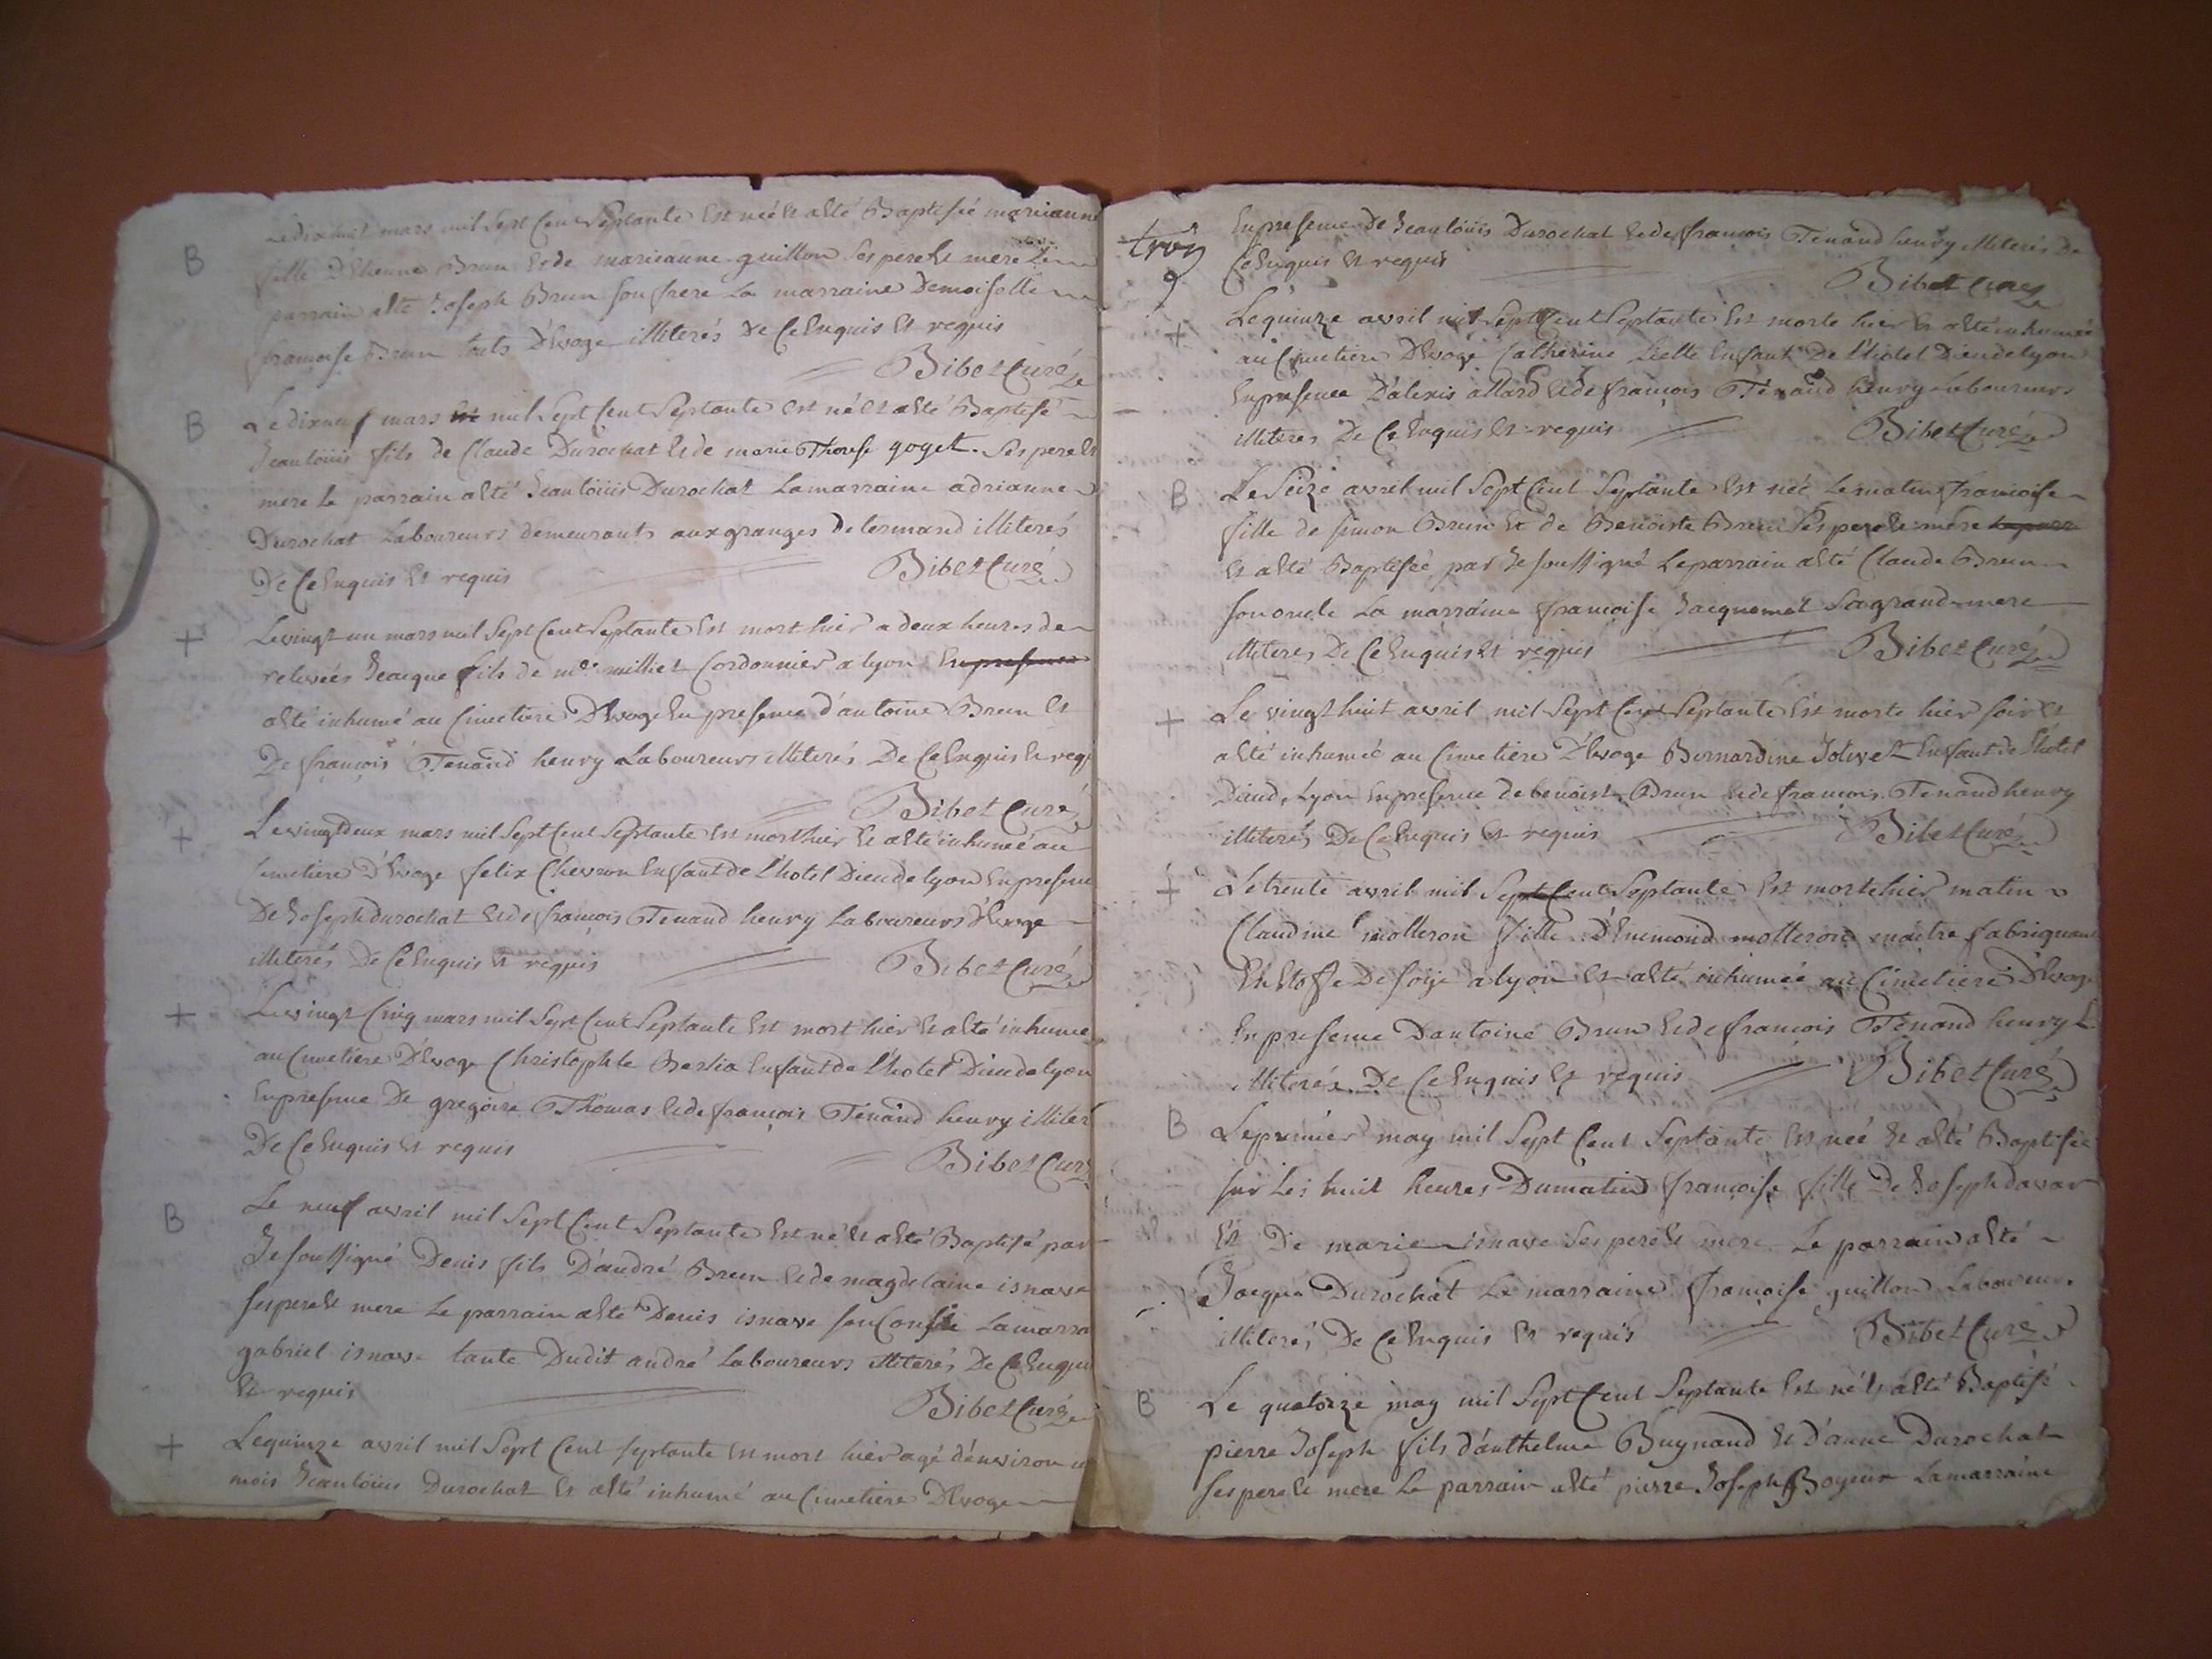 B
Le dixhuit mars mil Sept Cent Septante Est née Et aEté Baptisée marianne
fille D'Etienne Brun Et de marieanne guillon Ses pere Et mere Le
parrain aEté Joseph Brun Son frere La marraine Demoiselle
françoise Brun touts D'Evoge illiterés De Ce Enquis Et requis
Bibet Curé
B
Le dixneuf mars mil Sept Cent Septante Est né Et aEté Baptisé
Jeanloüis fils de Claude Durochat Et de marie Therese goget. Ses pere Et
mere Le parrain aEté Jeanloüis Durochat La marraine adrianne
Durochat Laboureurs demeurants aux granges de termand illiterés
De Ce Enquis Et requis
Bibet Curé
+
Le vingt un mars mil Sept Cent Septante Est mort hier a deux heures de
relevées Jeacque fils de mr milliet Cordonnier a lyon En presence
aEté inhumé au Cimetiere D'Evoge En presence d'antoine Brun Et
De françois Tenand henry Laboureurs illiterés De Ce Enquis Et requ
Bibet Curé
+
Le vingtdeux mars mil Sept Cent Septante Est mort hier Et aEté inhumé au
Cimetiere D'Evoge felix Chevron Enfant de L'hotel Dieu de lyon En presence
De Joseph durochat Et de françois Tenand henry Laboureurs d'Evoge
illiterés De Ce Enquis Et requis
Bibet Curé
+
Le vingt Cinq mars mil Sept Cent Septante Est mort hier Et aEté inhumé
au Cimetiere D'Evoge Christophle Berlia Enfant de L'hotel Dieu de lyon
En presence De gregoire Thomas Et de françois Tenand henry illiter
De Ce Enquis Et requis
Bibet Curé
B
Le neuf avril mil Sept Cent Septante Est né Et aEté Baptisé par
Je soussigné Denis fils D'andré Brun Et de magdelaine isnave
Ses pere Et mere Le parrain aEté Denis isnave Son La marra
gabriel isnave tante Dudit andré Laboureurs illiterés De Ce Enquis
Et requis
Bibet Curé
+
Le quinze avril mil Sept Cent Septante Est mort hier agé d'environ u
mois Jeanloüis Durochat Et aEté inhumé au Cimetiere D'Evoge
trois
9
En presence De Jeanloüis Durochat Et de françois Tenand henry illiterés De
Ce Enquis Et requis
Bibet Curé
+
Le quinze avril mil Sept Cent Septante Est morte hier Et aEté inhumée
au Cimetiere D'Evoge Catherine Enfant De L'hotel Dieu de lyon
En presence D'alexis allard Et de françois Tenand henry Laboureurs
illiterés De Ce Enquis Et requis
Bibet Curé
B
Le Seize avril mil Sept Cent Septante Est née Le matin françoise
fille de Simon Brun Et de Benoiste Brun Ses pere Et mere
Et aEté Baptisée par Je soussigné Le parrain aEté Claude Brun
Son oncle La marraine françoise Jacquemet Sa grand mere
illiterés De Ce Enquis Et requis
Bibet Curé
+
Le vingt huit avril mil Sept Cent Septante Est morte hier soir Et
aEté inhumée au Cimetiere D'Evoge Bernardine Jolivet Enfant de L'hotel
Dieu de Lyon En presence de benoist Brun Et de françois Tenand henry
illiterés De Ce Enquis Et requis
Bibet Curé
+
Le trente avril mil Sept Cent Septante Est morte hier matin
Claudine molleron fille D'Enimond molleron maitre fabriquant
En Etoffe De Soije a lyon Et aEté inhumée au Cimetiere D'Evoge
En presence D'antoine Brun Et de françois Tenand henry L
illiterés De Ce Enquis Et requis
Bibet Curé
B
Le premier may mil Sept Cent Septante Est née Et aEté Baptisée
Sur Les huit heures Du matin françoise fille De Joseph davar
Et De marie isnave Ses pere Et mere Le parrain aEté
Jacque Durochat La marraine françoise guillon Laboureurs
illiterés De Ce Enquis Et requis
Bibet Curé
B
Le quatorze may mil Sept Cent Septante Est né Et aEté Baptisé
pierre Joseph fils d'anthelme Buynand Et d'anne Durochat
Ses pere Et mere Le parrain aEté pierre Joseph Boyeux La marraine